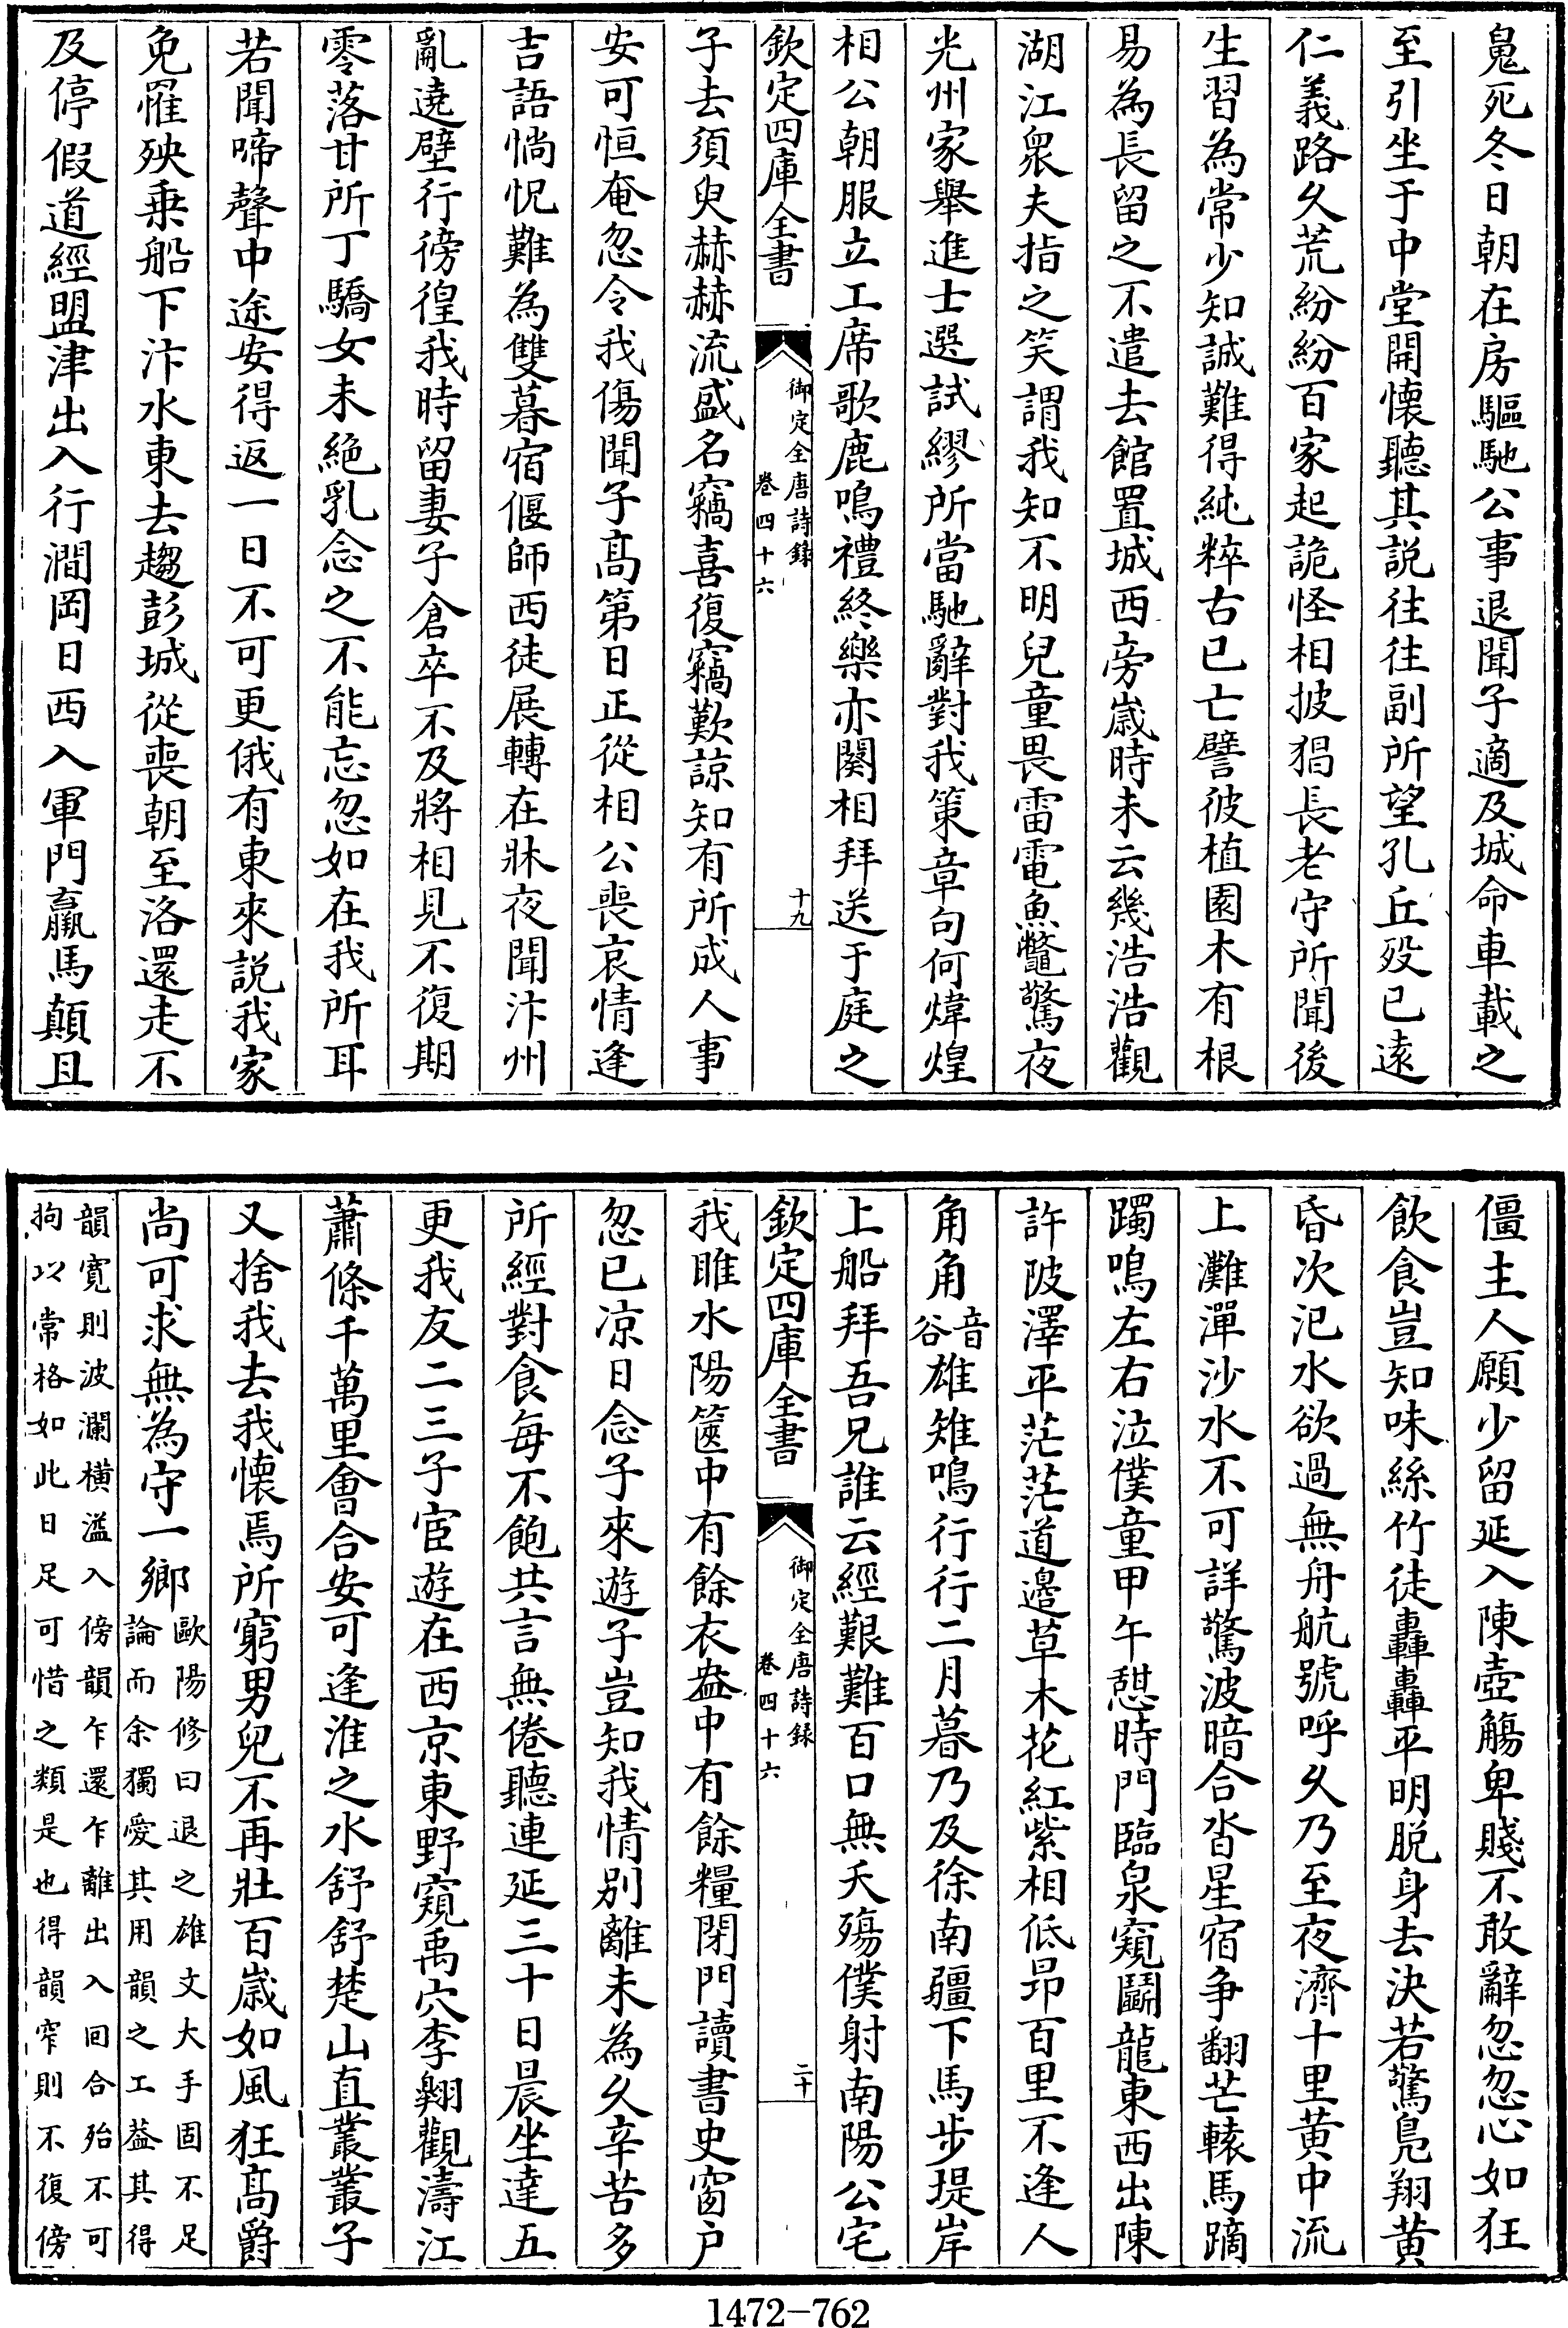 鬼死冬日朝在房驅馳公事退聞子適及城命車載之
至引坐于中堂開懐聽其説往往副所望孔丘殁已逺
仁義路久荒紛紛百家起詭怪相披猖長老守所聞後
生習為常少知誠難得純粹古已亡譬彼植園木有根
易為長留之不遣去館置城西旁嵗時未云幾浩浩觀
湖江衆夫指之笑謂我知不明兒童畏雷電魚鼈驚夜
光州家舉進士選試繆所當馳辭對我策章句何煒煌
相公朝服立工席歌鹿鳴禮終樂亦闋相拜送于庭之
欽定四庫全書
御定全唐詩錄
卷四十六
十九
子去須臾赫赫流盛名竊喜復竊歎諒知有所成人事
安可恒奄忽令我傷聞子髙第日正從相公喪哀情逢
吉語惝怳難為雙暮宿偃師西徒展轉在牀夜聞汴州
亂遶壁行徬徨我時留妻子倉卒不及將相見不復期
零落甘所丁驕女未絶乳念之不能忘忽如在我所耳
若聞啼聲中途安得返一日不可更俄有東來説我家
免罹殃乗船下汴水東去趨彭城從喪朝至洛還走不
及停假道經盟津出入行澗岡日西入軍門羸馬顛且
僵主人願少留延入陳壺觴卑賤不敢辭忽忽心如狂
飲食豈知味絲竹徒轟轟平明脱身去決若驚鳬翔黄
昏次汜水欲過無舟航號呼久乃至夜濟十里黄中流
上灘潬沙水不可詳驚波暗合沓星宿争翻芒轅馬蹢
躅鳴左右泣僕童甲午憇時門臨泉窺鬭龍東西出陳
許陂澤平茫茫道邊草木花紅紫相低昻百里不逢人
角角音谷雄雉鳴行行二月暮乃及徐南疆下馬步堤岸
上船拜吾兄誰云經艱難百口無夭殤僕射南陽公宅
欽定四庫全書
御定全唐詩録
卷四十六
二十
我睢水陽篋中有餘衣盎中有餘糧閉門讀書史窗户
忽已凉日念子來遊子豈知我情别離未為久辛苦多
所經對食每不飽共言無倦聽連延三十日晨坐達五
更我友二三子宦遊在西京東野窺禹穴李翺觀濤江
蕭條千萬里會合安可逢淮之水舒舒楚山直叢叢子
又捨我去我懐焉所窮男兒不再壯百嵗如風狂髙爵
尚可求無為守一鄉歐陽修曰退之雄文大手固不足
論而余獨愛其用韻之工葢其得
韻寛則波瀾横溢入傍韻乍還乍離出入囘合殆不可
拘以常格如此日足可惜之類是也得韻窄則不復傍
1472-762